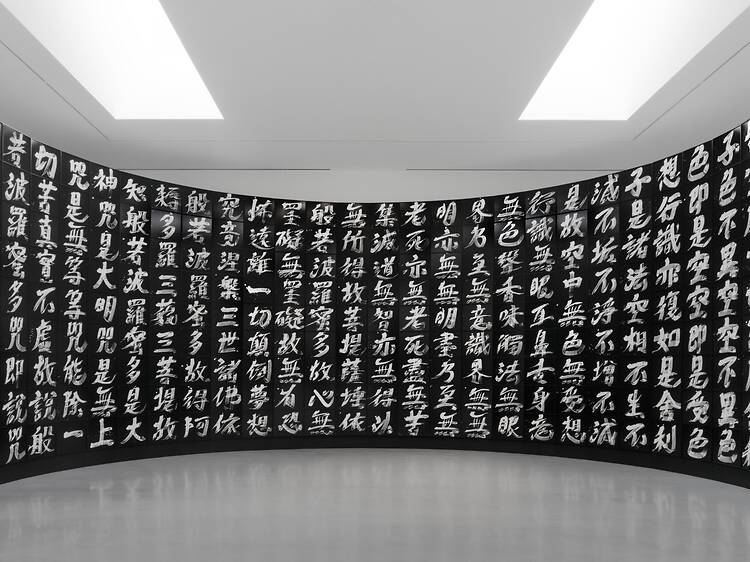 子色不異空空不異色
色即是空空即是色受
想行識亦復如是舍利
子是諸法空相不生不
滅不垢不淨不增不減
是故空中無色無受想
行識無眼耳鼻舌身意
無色聲香味觸法無眼
界乃至無意識界無無
明亦無無明盡乃至無
老死亦無老死盡無苦
集滅道無智亦無得以
無所得故菩提薩埵依
般若波羅蜜多故心無
罣礙無罣礙故無有恐
怖遠離一切顛倒夢想
究竟涅槃三世諸佛依
般若波羅蜜多故得阿
耨多羅三藐三菩提故
知般若波羅蜜多是大
神咒是大明咒是無上
咒是無等等咒能除一
切苦真實不虛故說般
若波羅蜜多咒即說咒